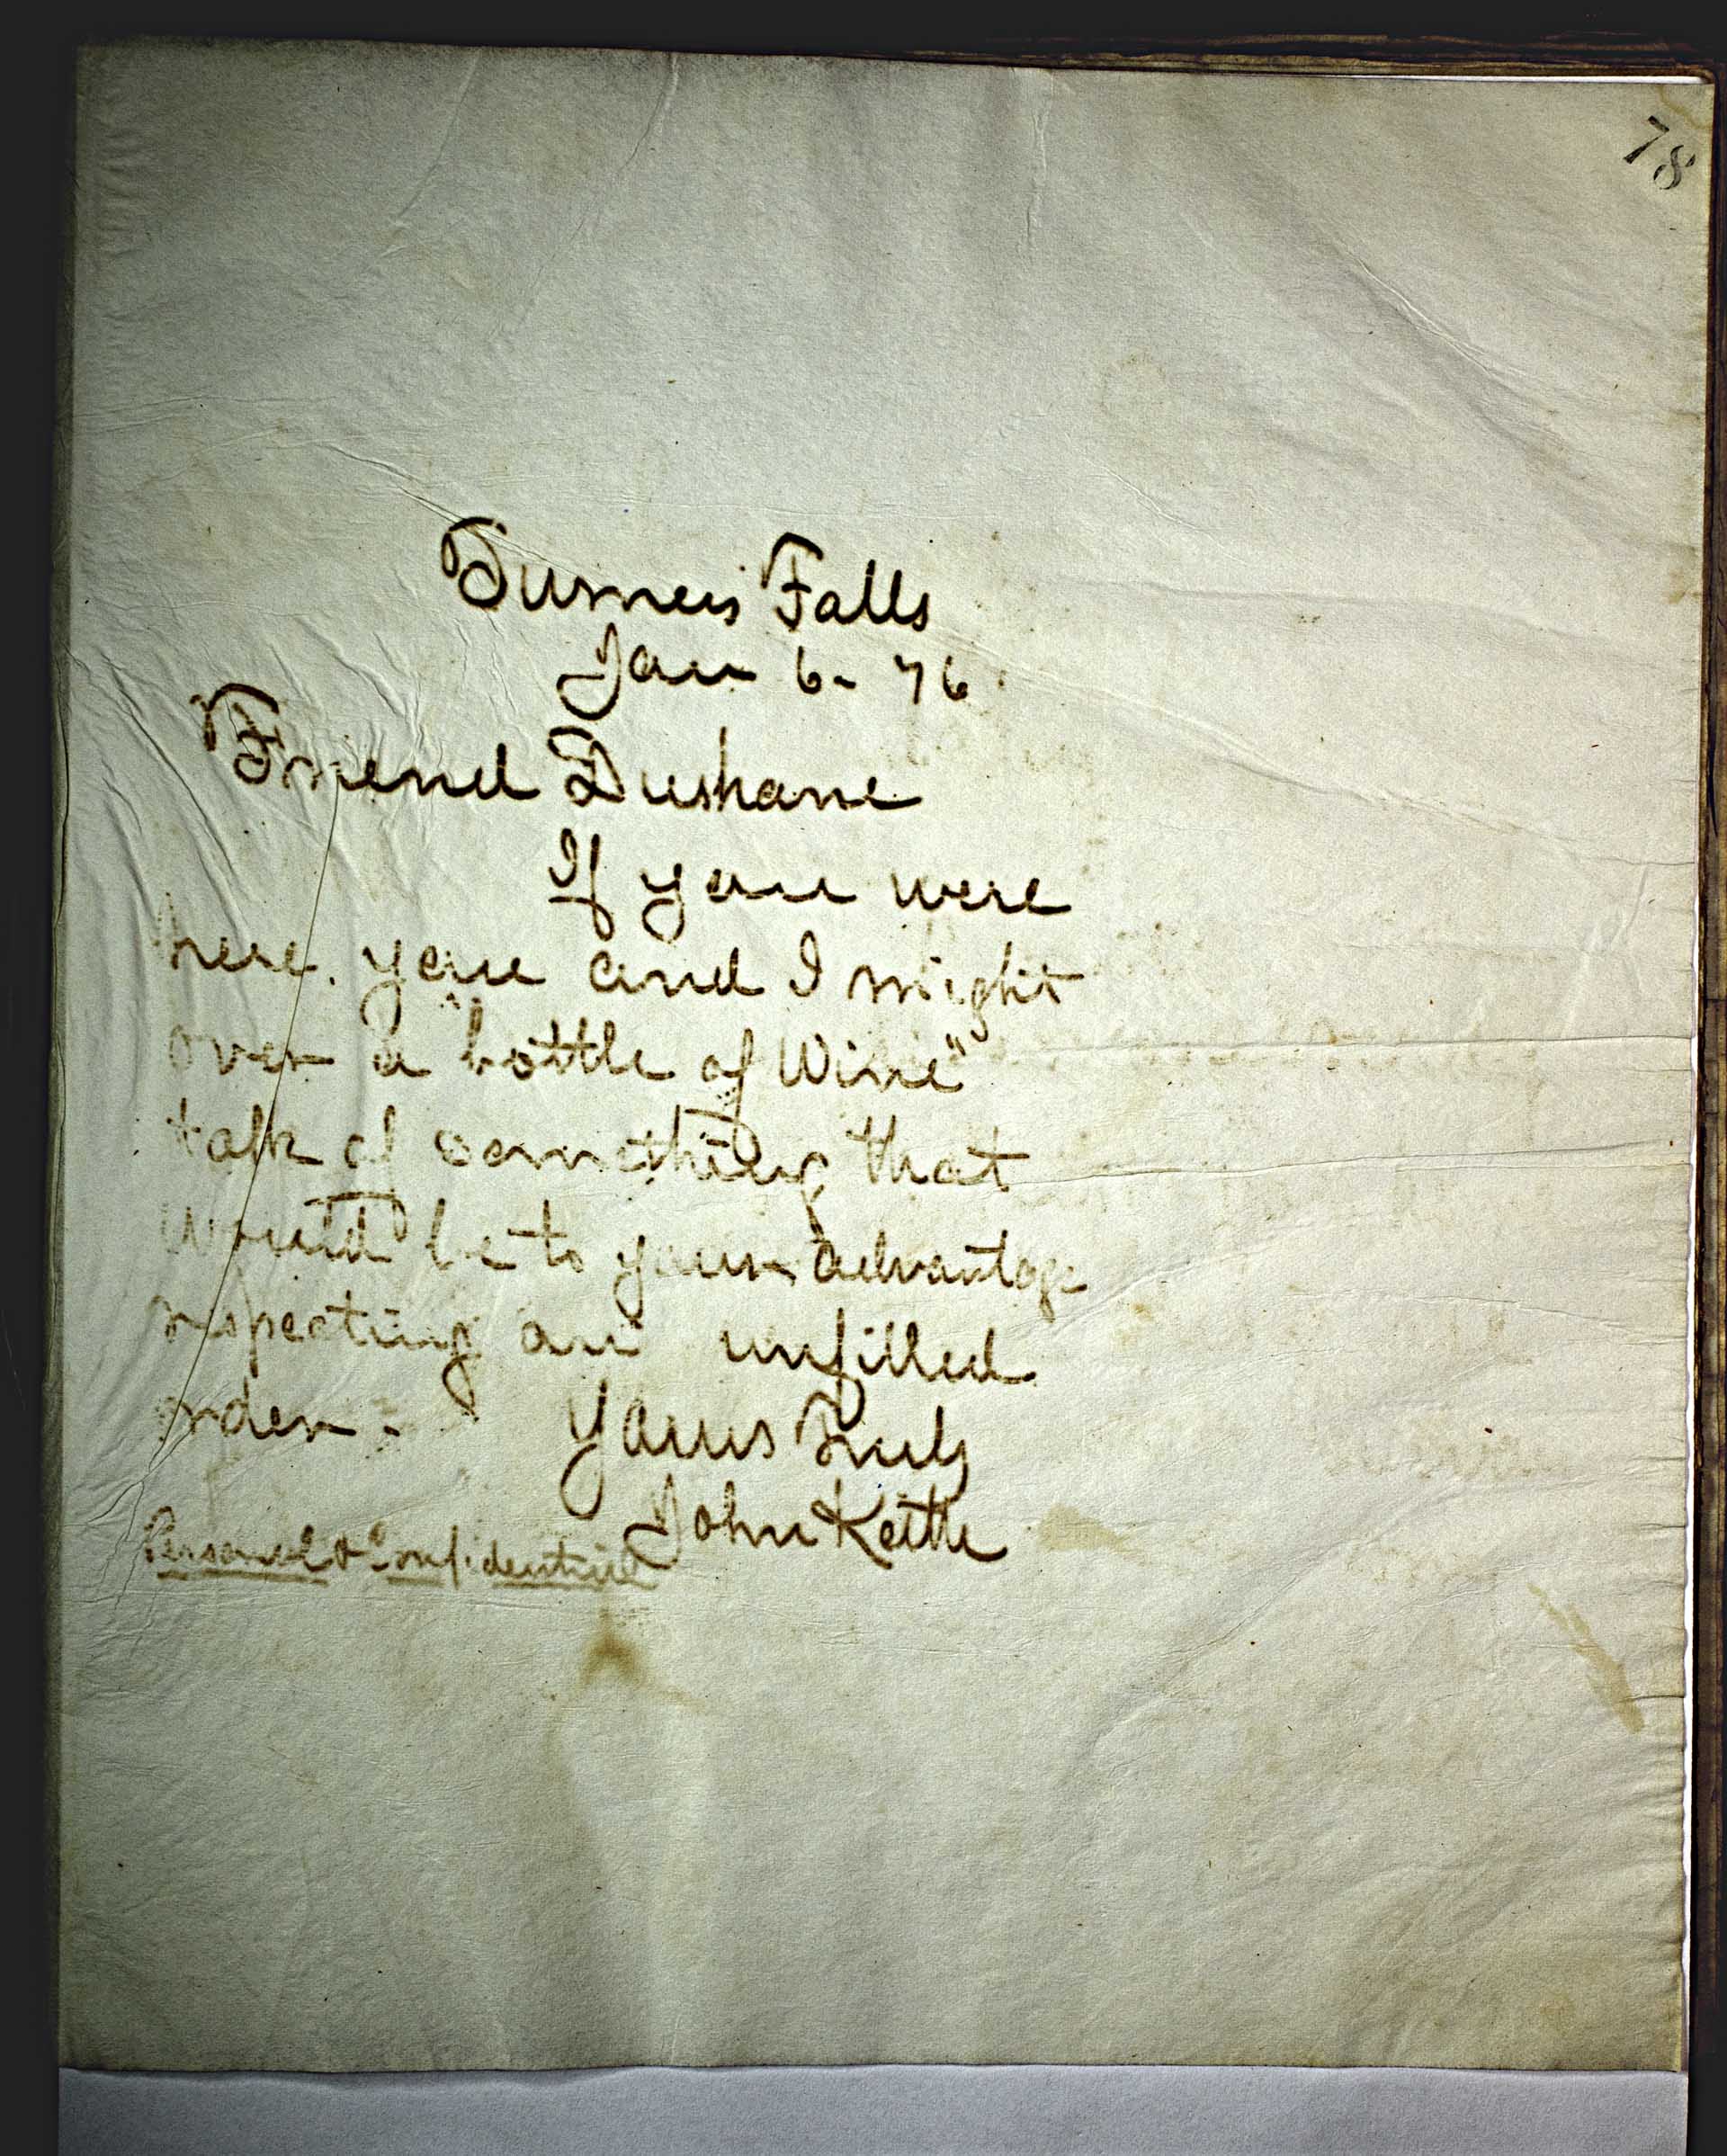 78
Turners Falls
Jan 6 - 76
Friend Dushane
If you were
here. you and I might
over "a bottle of Wine"
talk of something that
Would be to your advantage
respecting an unfilled
order - Yours Truly
John Keith
Personal & Confidential